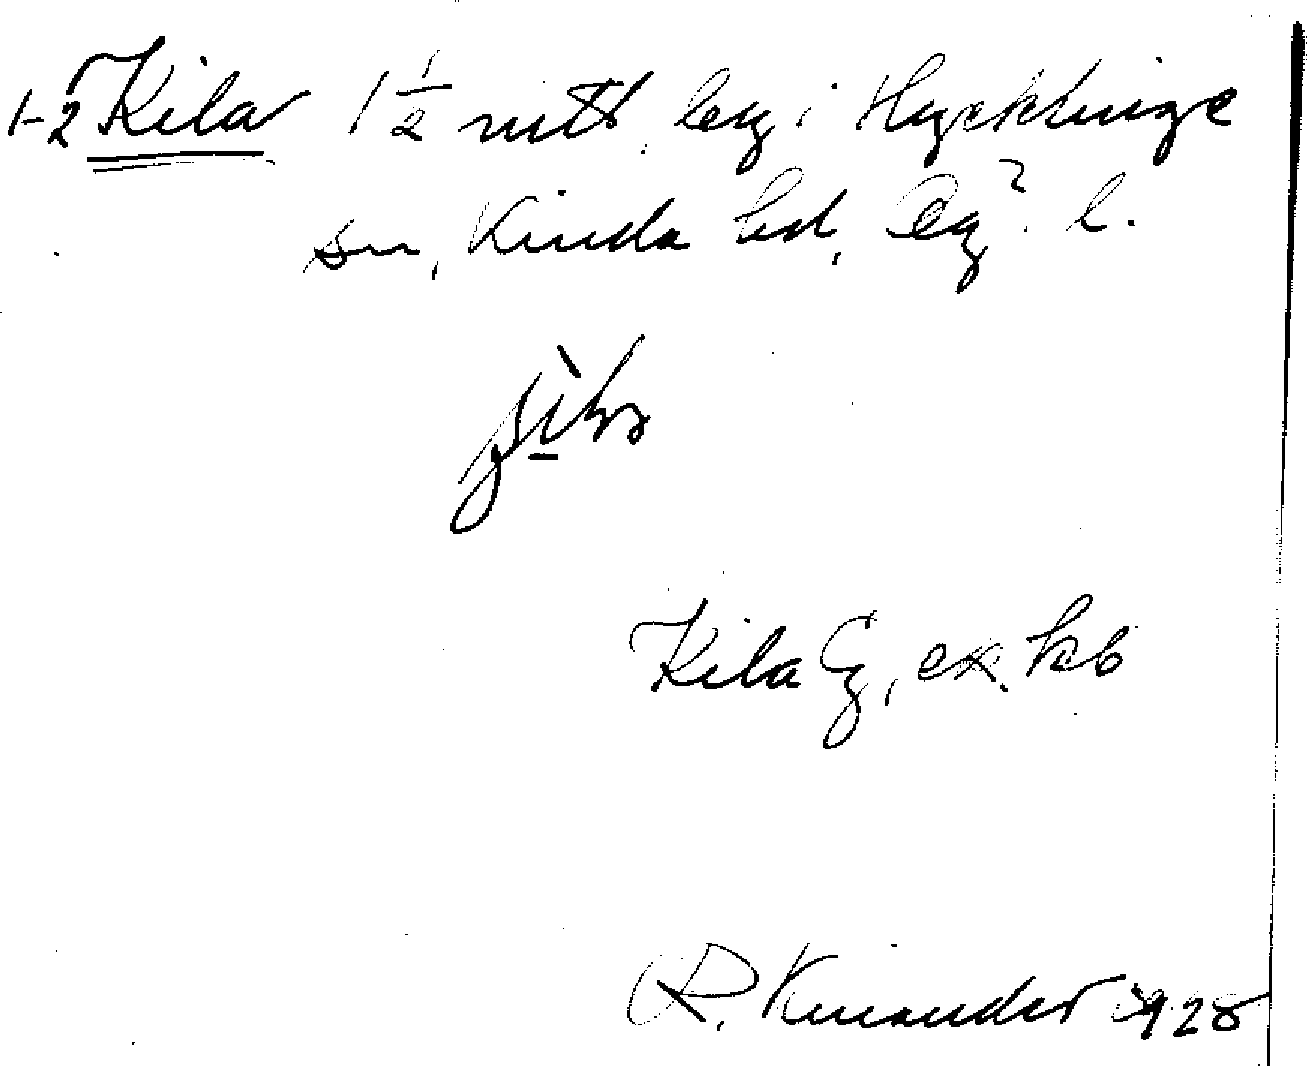 1-2 Kila 1 1/2 mtl beg i Hycklinge
sn, Kinda hd, Ög. l.
Kila Eg, ex. kb
R. Kinander 1928